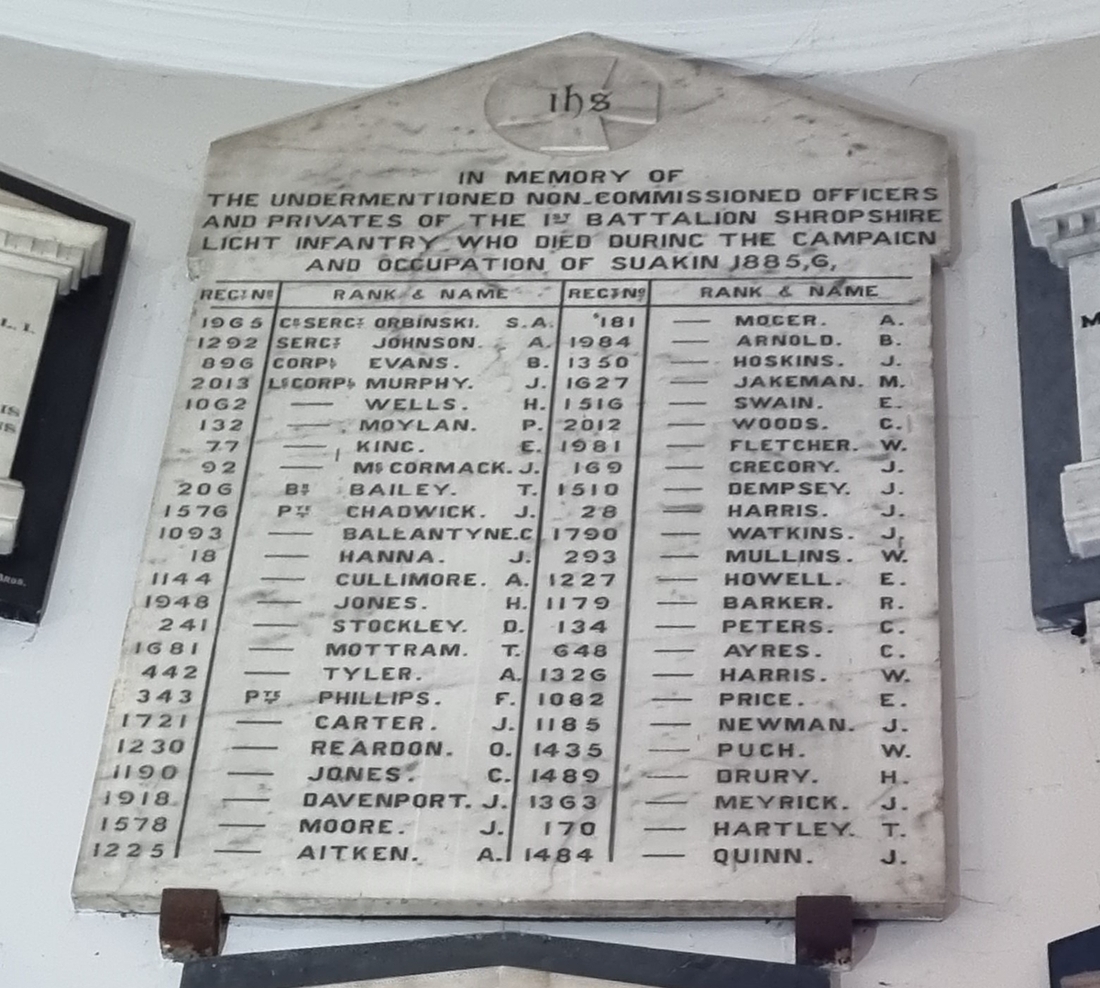 ihs
IN MEMORY OF
THE UNDERMENTIONED NON-COMMISSIONED OFFICERS
AND PRIVATES OF THE 1ST BATTALION SHROPSHIRE
LIGHT INFANTRY WHO DIED DURING THE CAMPAIGN
AND OCCUPATION OF SUAKIN 1885,6,
REGT NO RANK & NAME REGT NO RANK & NAME
1965 CR SERGT ORBINSKI. S.A. 181 — MOGER. A.
1292 SERGT JOHNSON. A. 1984 — ARNOLD. B.
896 CORPL EVANS. B. 1350 — HOSKINS. J.
2013 LCE CORPL MURPHY. J. 1627 — JAKEMAN. M.
1062 — WELLS. H. 1516 — SWAIN. E.
132 — MOYLAN. P. 2012 — WOODS. C.
77 — KING. E. 1981 — FLETCHER. W.
92 — MC CORMACK. J. 169 — GREGORY. J.
206 BR BAILEY. T. 1510 — DEMPSEY. J.
1576 PTE CHADWICK. J. 28 — HARRIS. J.
1093 — BALLANTYNE. C. 1790 — WATKINS. J.
18 — HANNA. J. 293 — MULLINS. W.
1144 — CULLIMORE. A. 1227 — HOWELL. E.
1948 — JONES. H. 1179 — BARKER. R.
241 — STOCKLEY. D. 134 — PETERS. C.
1681 — MOTTRAM. T. 648 — AYRES. C.
442 — TYLER. A. 1326 — HARRIS. W.
343 PTS PHILLIPS. F. 1082 — PRICE. E.
1721 — CARTER. J. 1185 — NEWMAN. J.
1230 — REARDON. O. 1435 — PUGH. W.
1190 — JONES. C. 1489 — DRURY. H.
1918 — DAVENPORT. J. 1363 — MEYRICK. J.
1578 — MOORE. J. 170 — HARTLEY. T.
1225 — AITKEN. A. 1484 — QUINN. J.